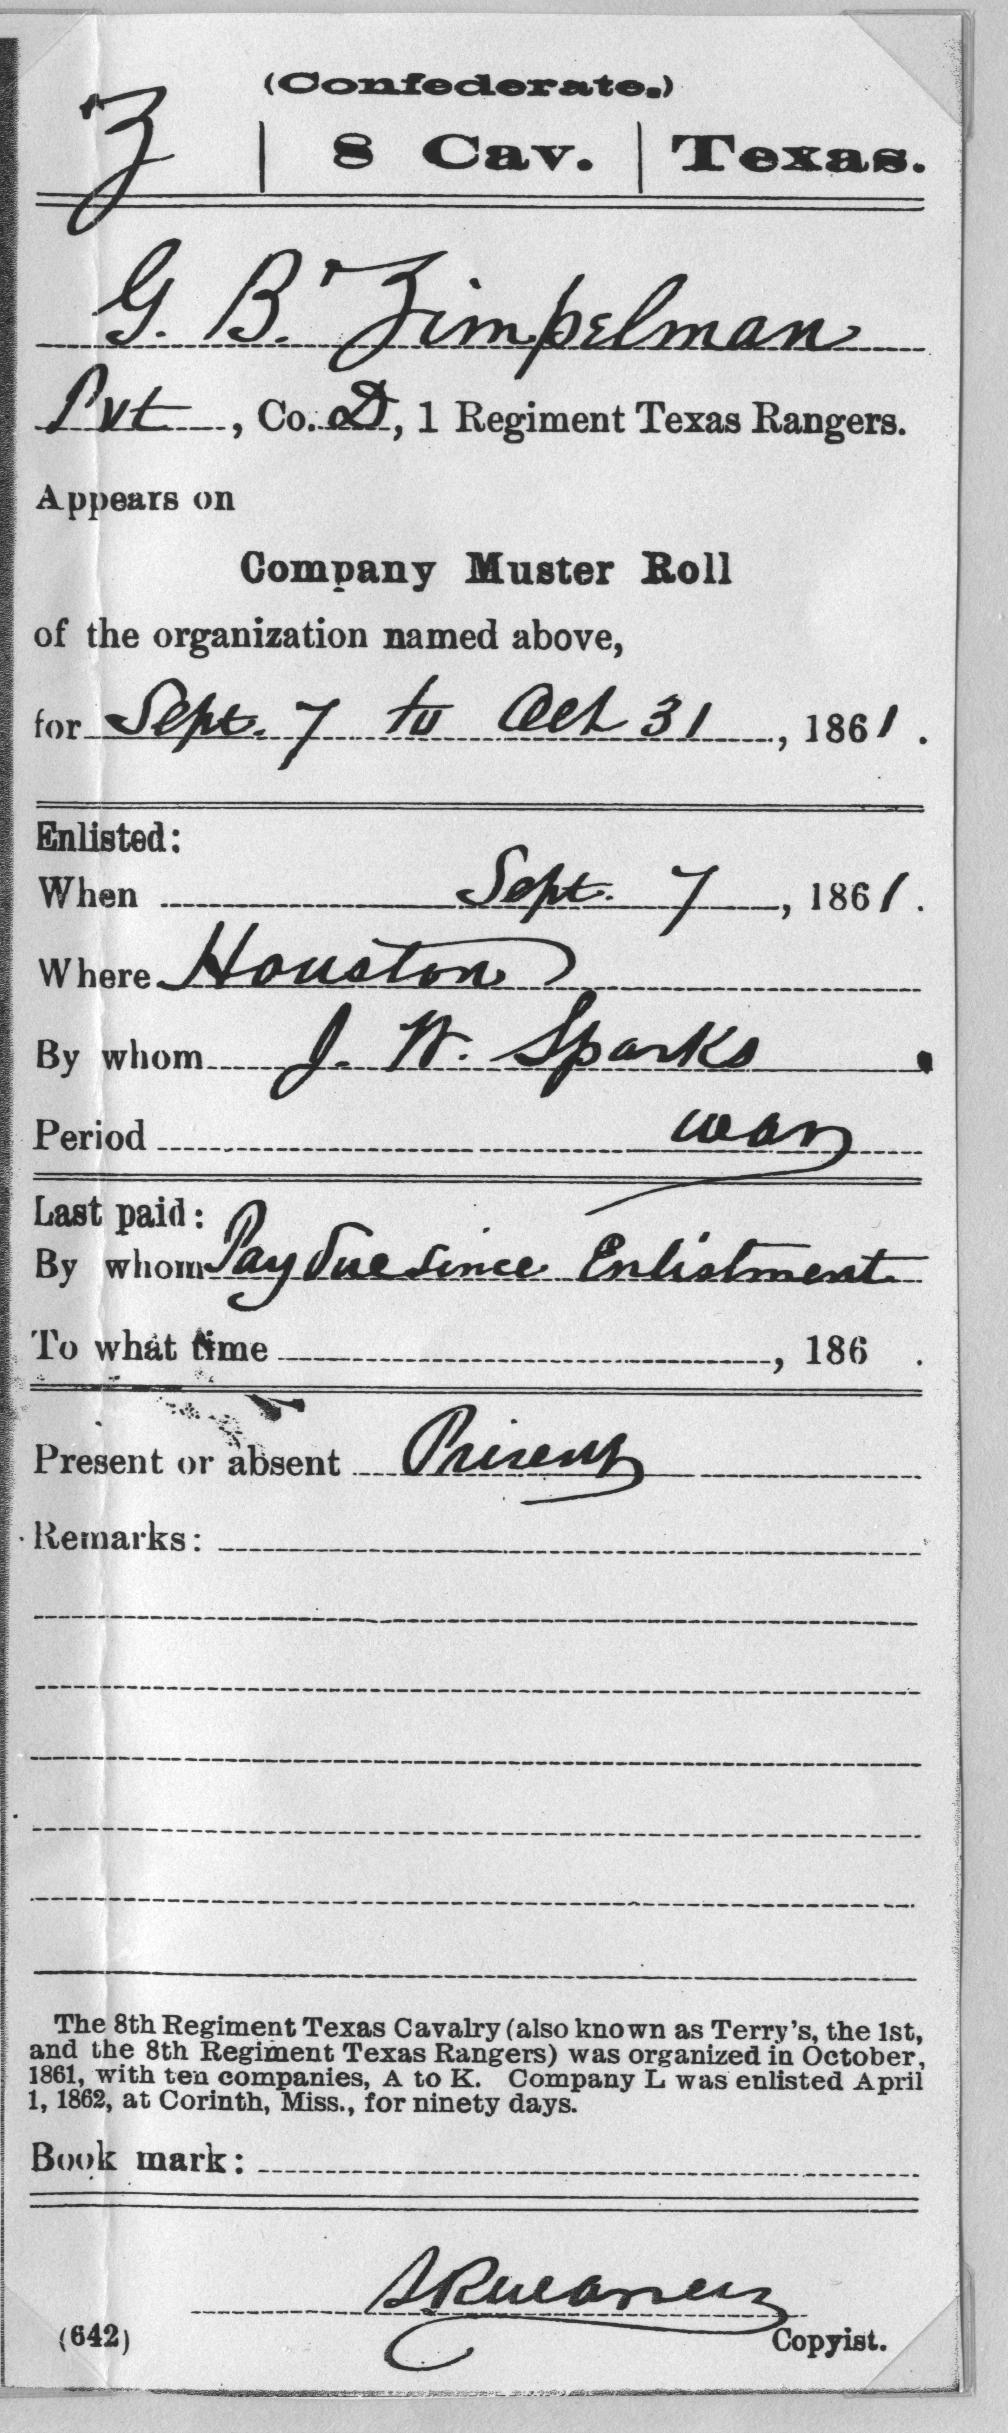 (Confederate.)
Z | 8 Cav. | Texas.
G. B. Zimpelman
Pvt, Co. D, 1 Regiment Texas Rangers.
Appears on
Company Muster Roll
of the organization named above,
for Sept. 7 to Oct 31, 1861.
Enlisted:
When Sept. 7, 1861.
Where Houston
By whom J. W. Sparks.
Period war
Last paid:
By whom Pay due since Enlistment
To what time , 186 .
Present or absent Present
Remarks:
The 8th Regiment Texas Cavalry (also known as Terry's, the 1st,
and the 8th Regiment Texas Rangers) was organized in October,
1861, with ten companies, A to K. Company L was enlisted April
1, 1862, at Corinth, Miss., for ninety days.
Book mark:
(642)
Copyist.